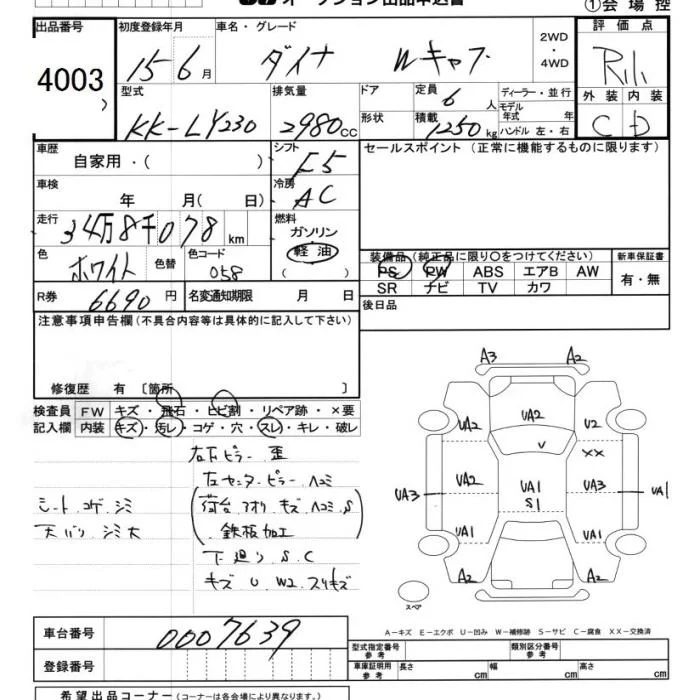 オークション出品申込書
①会場控
出品番号
4003
初度登録年月
15 6月
車名・グレード
ダイナ Wキャブ
2WD
・
4WD
評価点
型式
KK-LY230
排気量
2980cc
ドア
形状
定員
6人
積載
1250kg
ディーラー・並行
モデル年式 年
ハンドル 左・右
外装 内装
C D
車歴
自家用・( )
シフト
F5
セールスポイント (正常に機能するものに限ります)
車検
年 月( 日)
冷房
AC
走行
34万8千078km
燃料
ガソリン
軽油
( )
色
ホワイト
色替
色コード
058
装備品 (純正品に限り〇をつけてください)
PS PW ABS エアB AW
SR ナビ TV カワ
新車保証書
有・無
R券
6690円
名変通知期限 月 日
後日品
注意事項申告欄(不具合内容等は具体的に記入して下さい)
修復歴 有 〔箇所 〕
検査員記入欄
FW キズ・飛石・ヒビ割・リペア跡・×要
内装 キズ・汚レ・コゲ・穴・スレ・キレ・破レ
右下ピラー 歪
左センターピラー ヘコミ
シート コゲ シミ
(荷台 アオリ キズ ヘコミ S
天バリ シミ大
鉄板加工)
下廻り S.C
キズ U W2 スリキズ
A3 A2
UA2 UA2 U2
V ××
UA3 UA2 UA1 UA3 UA1
S1
UA1 UA1
A2 A2
スペア
A−キズ E−エクボ U−凹み W−補修跡 S−サビ C−腐食 XX−交換済
車台番号
0007639
登録番号
型式指定番号 参考
類別区分番号 参考
車庫証明用 参考
長さ cm 幅 cm 高さ cm
希望出品コーナー (コーナーは各会場により異なります。)